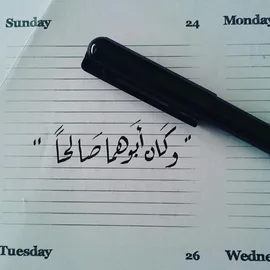 Sunday 24 Monday
" وكَان أبَوهما صَالحاً "
Tuesday 26 Wedne